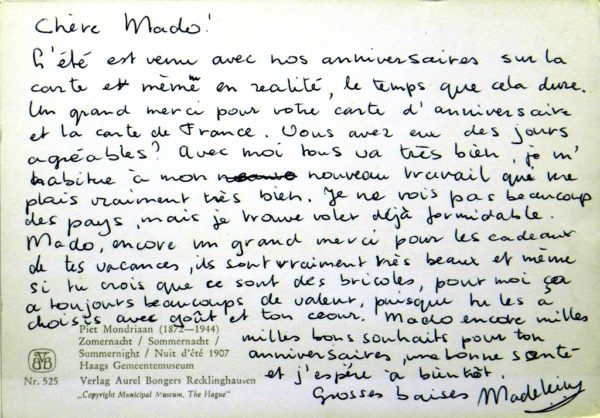 Chère Mado!
L'été est venu avec nos anniversaires sur la
carte et même en realité, le temps que cela dure.
Un grand merci pour votre carte d'anniversaire
et la carte de France. Vous avez eu des jours
agréables? Avec moi tous va très bien, je m'
habitue à mon nouveau travail que me
plais vraiment très bien. Je ne vois pas beaucoup
des pays, mais je trouve voler déjà formidable.
Mado, encore un grand merci pour les cadeaux
de tes vacances, ils sont vraiment très beaux et même
si tu crois que ce sont des bricoles, pour moi ça
a toujours beaucoups de valeur, puisque tu les a
choisis avec goût et ton cœur. Mado encore milles
milles bons souhaits pour ton
anniversaires, une bonne santé
et j'espère à bientôt.
Grosses baises Madeleine
Piet Mondriaan (1872—1944)
Zomernacht / Sommernacht /
Summernight / Nuit d'été 1907
Haags Gemeentemuseum
Nr. 525 Verlag Aurel Bongers Recklinghausen
„Copyright Municipal Museum, The Hague"